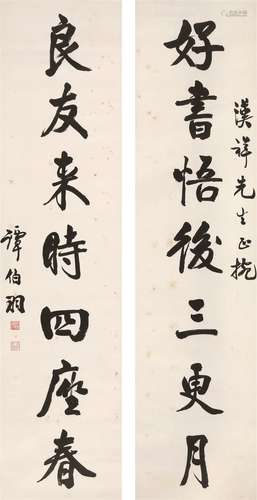 漢祥先生正挽
好書悟後三更月
良友来時四座春
譚伯羽